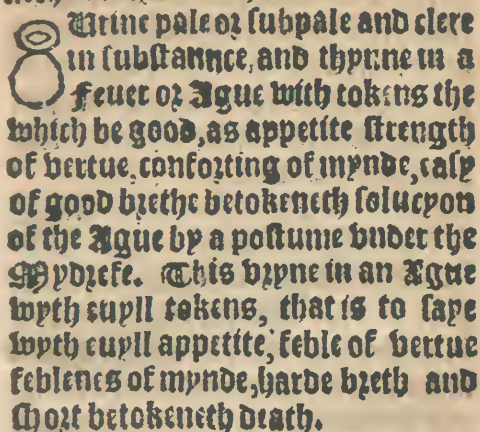 Urine pale or subpale and clere
in substannce, and thynne in a
Feuer or Ague with tokens the
which be good, as appetite strength
of vertue, conforting of mynde, easy
of good brethe betokeneth solucyon
of the Ague by a postume vnder the
Mydrefe. This vryne in an Ague
wyth euyll tokens, that is to saye
wyth euyll appetite, feble of vertue
feblenes of mynde, harde breth and
short betokeneth death.